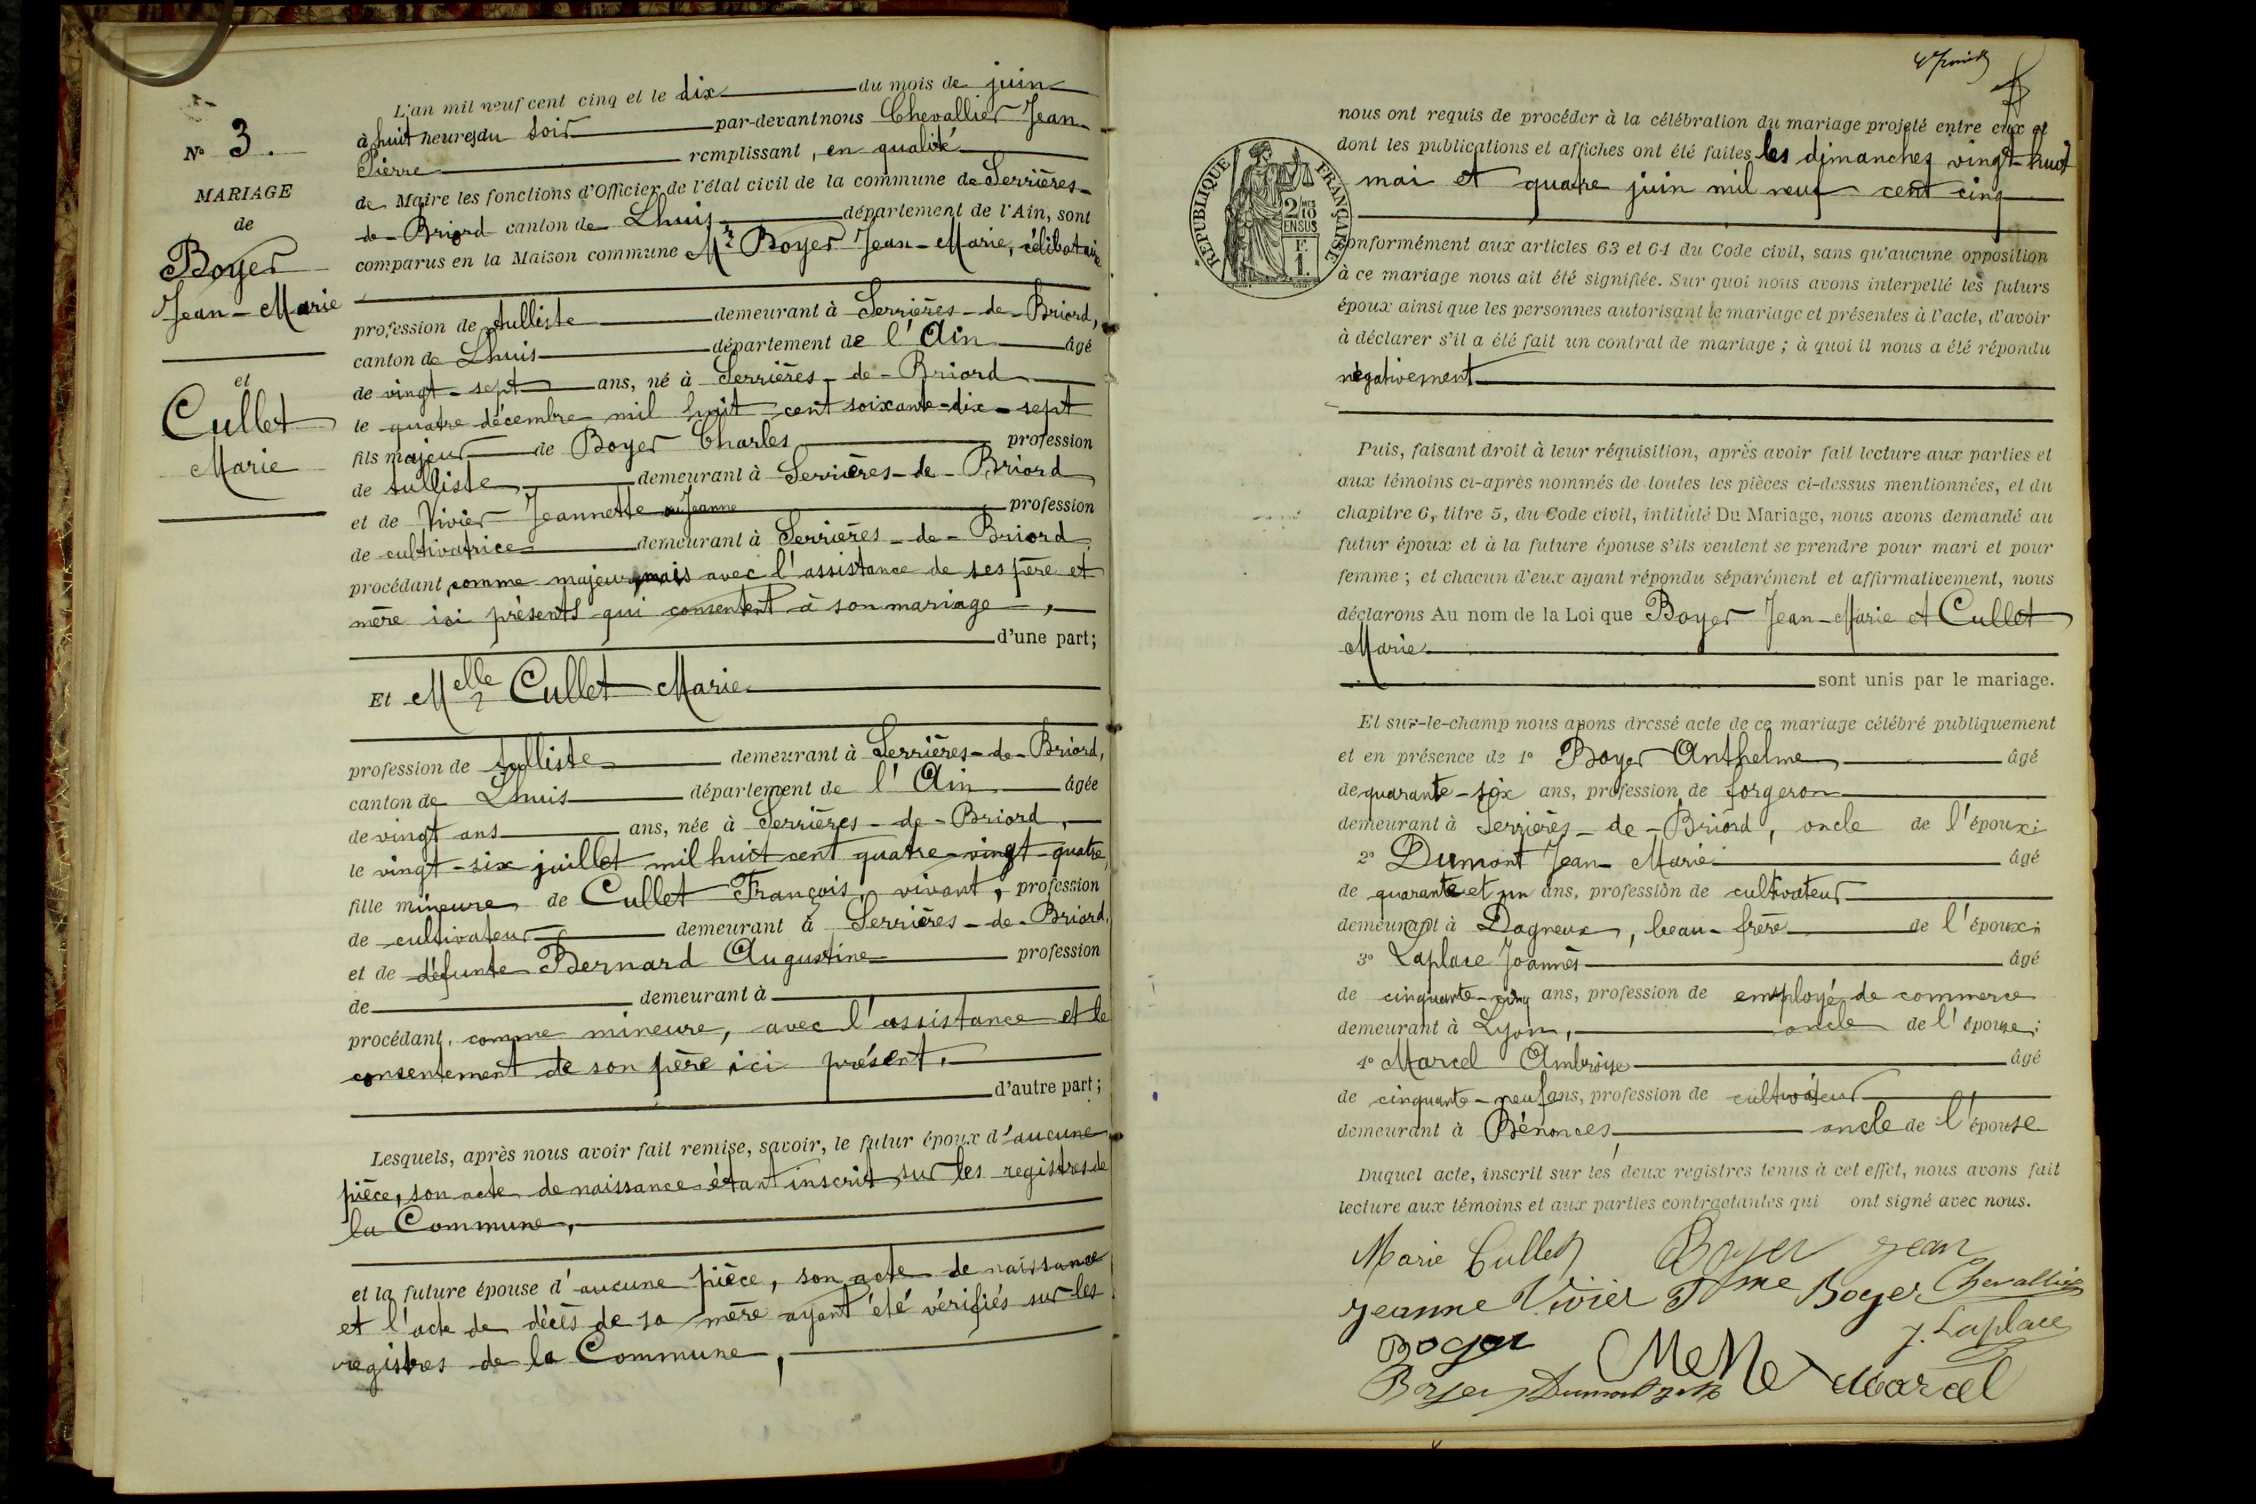 N° 3.
MARIAGE
de
Boyer
Jean-Marie
et
Cullet
Marie
L'an mil neuf cent cinq et le dix du mois de juin
à huit heures du soir par-devant nous Chevallier Jean
Pierre remplissant, en qualité
de Maire les fonctions d'Officier de l'état civil de la commune de Serrières-
de-Briord canton de Lhuis département de l'Ain, sont
comparus en la Maison commune Mr Boyer Jean-Marie, célibataire
profession de tulliste demeurant à Serrières-de-Briord,
canton de Lhuis département de l'Ain âgé
de vingt-sept ans, né à Serrières-de-Briord
le quatre décembre mil huit cent soixante-dix-sept
fils majeur de Boyer Charles profession
de tulliste demeurant à Serrières-de-Briord
et de Vivier Jeannette ou Jeanne profession
de cultivatrice demeurant à Serrières-de-Briord
procédant comme majeur, mais avec l'assistance de ses père et
mère ici présents qui consentent à son mariage,
d'une part;
Et Melle Cullet Marie
profession de tulliste demeurant à Serrières-de-Briord,
canton de Lhuis département de l'Ain âgée
de vingt ans ans, née à Serrières-de-Briord,
le vingt-six juillet mil huit cent quatre-vingt-quatre,
fille mineure de Cullet François, vivant, profession
de cultivateur demeurant à Serrières-de-Briord,
et de défunte Bernard Augustine profession
de demeurant à
procédant, comme mineure, avec l'assistance et le
consentement de son père ici présent,
d'autre part;
Lesquels, après nous avoir fait remise, savoir, le futur époux d'aucune
pièce, son acte de naissance étant inscrit sur les registres de
la Commune,
et la future épouse d'aucune pièce, son acte de naissance
et l'acte de décès de sa mère ayant été vérifiés sur les
registres de la Commune,
nous ont requis de procéder à la célébration du mariage projeté entre eux et
dont les publications et affiches ont été faites les dimanches vingt-huit
mai et quatre juin mil neuf cent cinq
RÉPUBLIQUE FRANÇAISE
2/10 EN SUS
F. 1.
conformément aux articles 63 et 64 du Code civil, sans qu'aucune opposition
à ce mariage nous ait été signifiée. Sur quoi nous avons interpellé les futurs
époux ainsi que les personnes autorisant le mariage et présentes à l'acte, d'avoir
à déclarer s'il a été fait un contrat de mariage; à quoi il nous a été répondu
négativement
Puis, faisant droit à leur réquisition, après avoir fait lecture aux parties et
aux témoins ci-après nommés de toutes les pièces ci-dessus mentionnées, et du
chapitre 6, titre 5, du Code civil, intitulé Du Mariage, nous avons demandé au
futur époux et à la future épouse s'ils veulent se prendre pour mari et pour
femme; et chacun d'eux ayant répondu séparément et affirmativement, nous
déclarons Au nom de la Loi que Boyer Jean-Marie et Cullet
Marie
sont unis par le mariage.
Et sur-le-champ nous avons dressé acte de ce mariage célébré publiquement
et en présence de 1° Boyer Anthelme âgé
de quarante-six ans, profession de forgeron
demeurant à Serrières-de-Briord, oncle de l'époux;
2° Dumont Jean-Marie âgé
de quarante et un ans, profession de cultivateur
demeurant à Dagneux, beau-frère de l'époux;
3° Laplace Joannès âgé
de cinquante-cinq ans, profession de employé de commerce
demeurant à Lyon, oncle de l'épouse;
4° Marcel Ambroise âgé
de cinquante-neuf ans, profession de cultivateur
demeurant à Bénonces, oncle de l'épouse
Duquel acte, inscrit sur les deux registres tenus à cet effet, nous avons fait
lecture aux témoins et aux parties contractantes qui ont signé avec nous.
Marie Cullet Boyer Jean
Jeanne Vivier Fme Boyer Chevallier
Boyer J. Laplace
Boyer Dumont Marcel